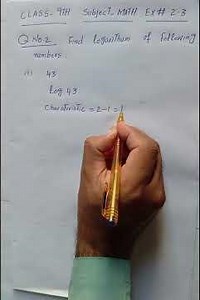 CLASS- 9TH Subject- MATH Ex# 2.3
Q.No.2 Find logarithum of following
numbers.
(i) 43
Log 43
Charctristic = 2-1 = 1